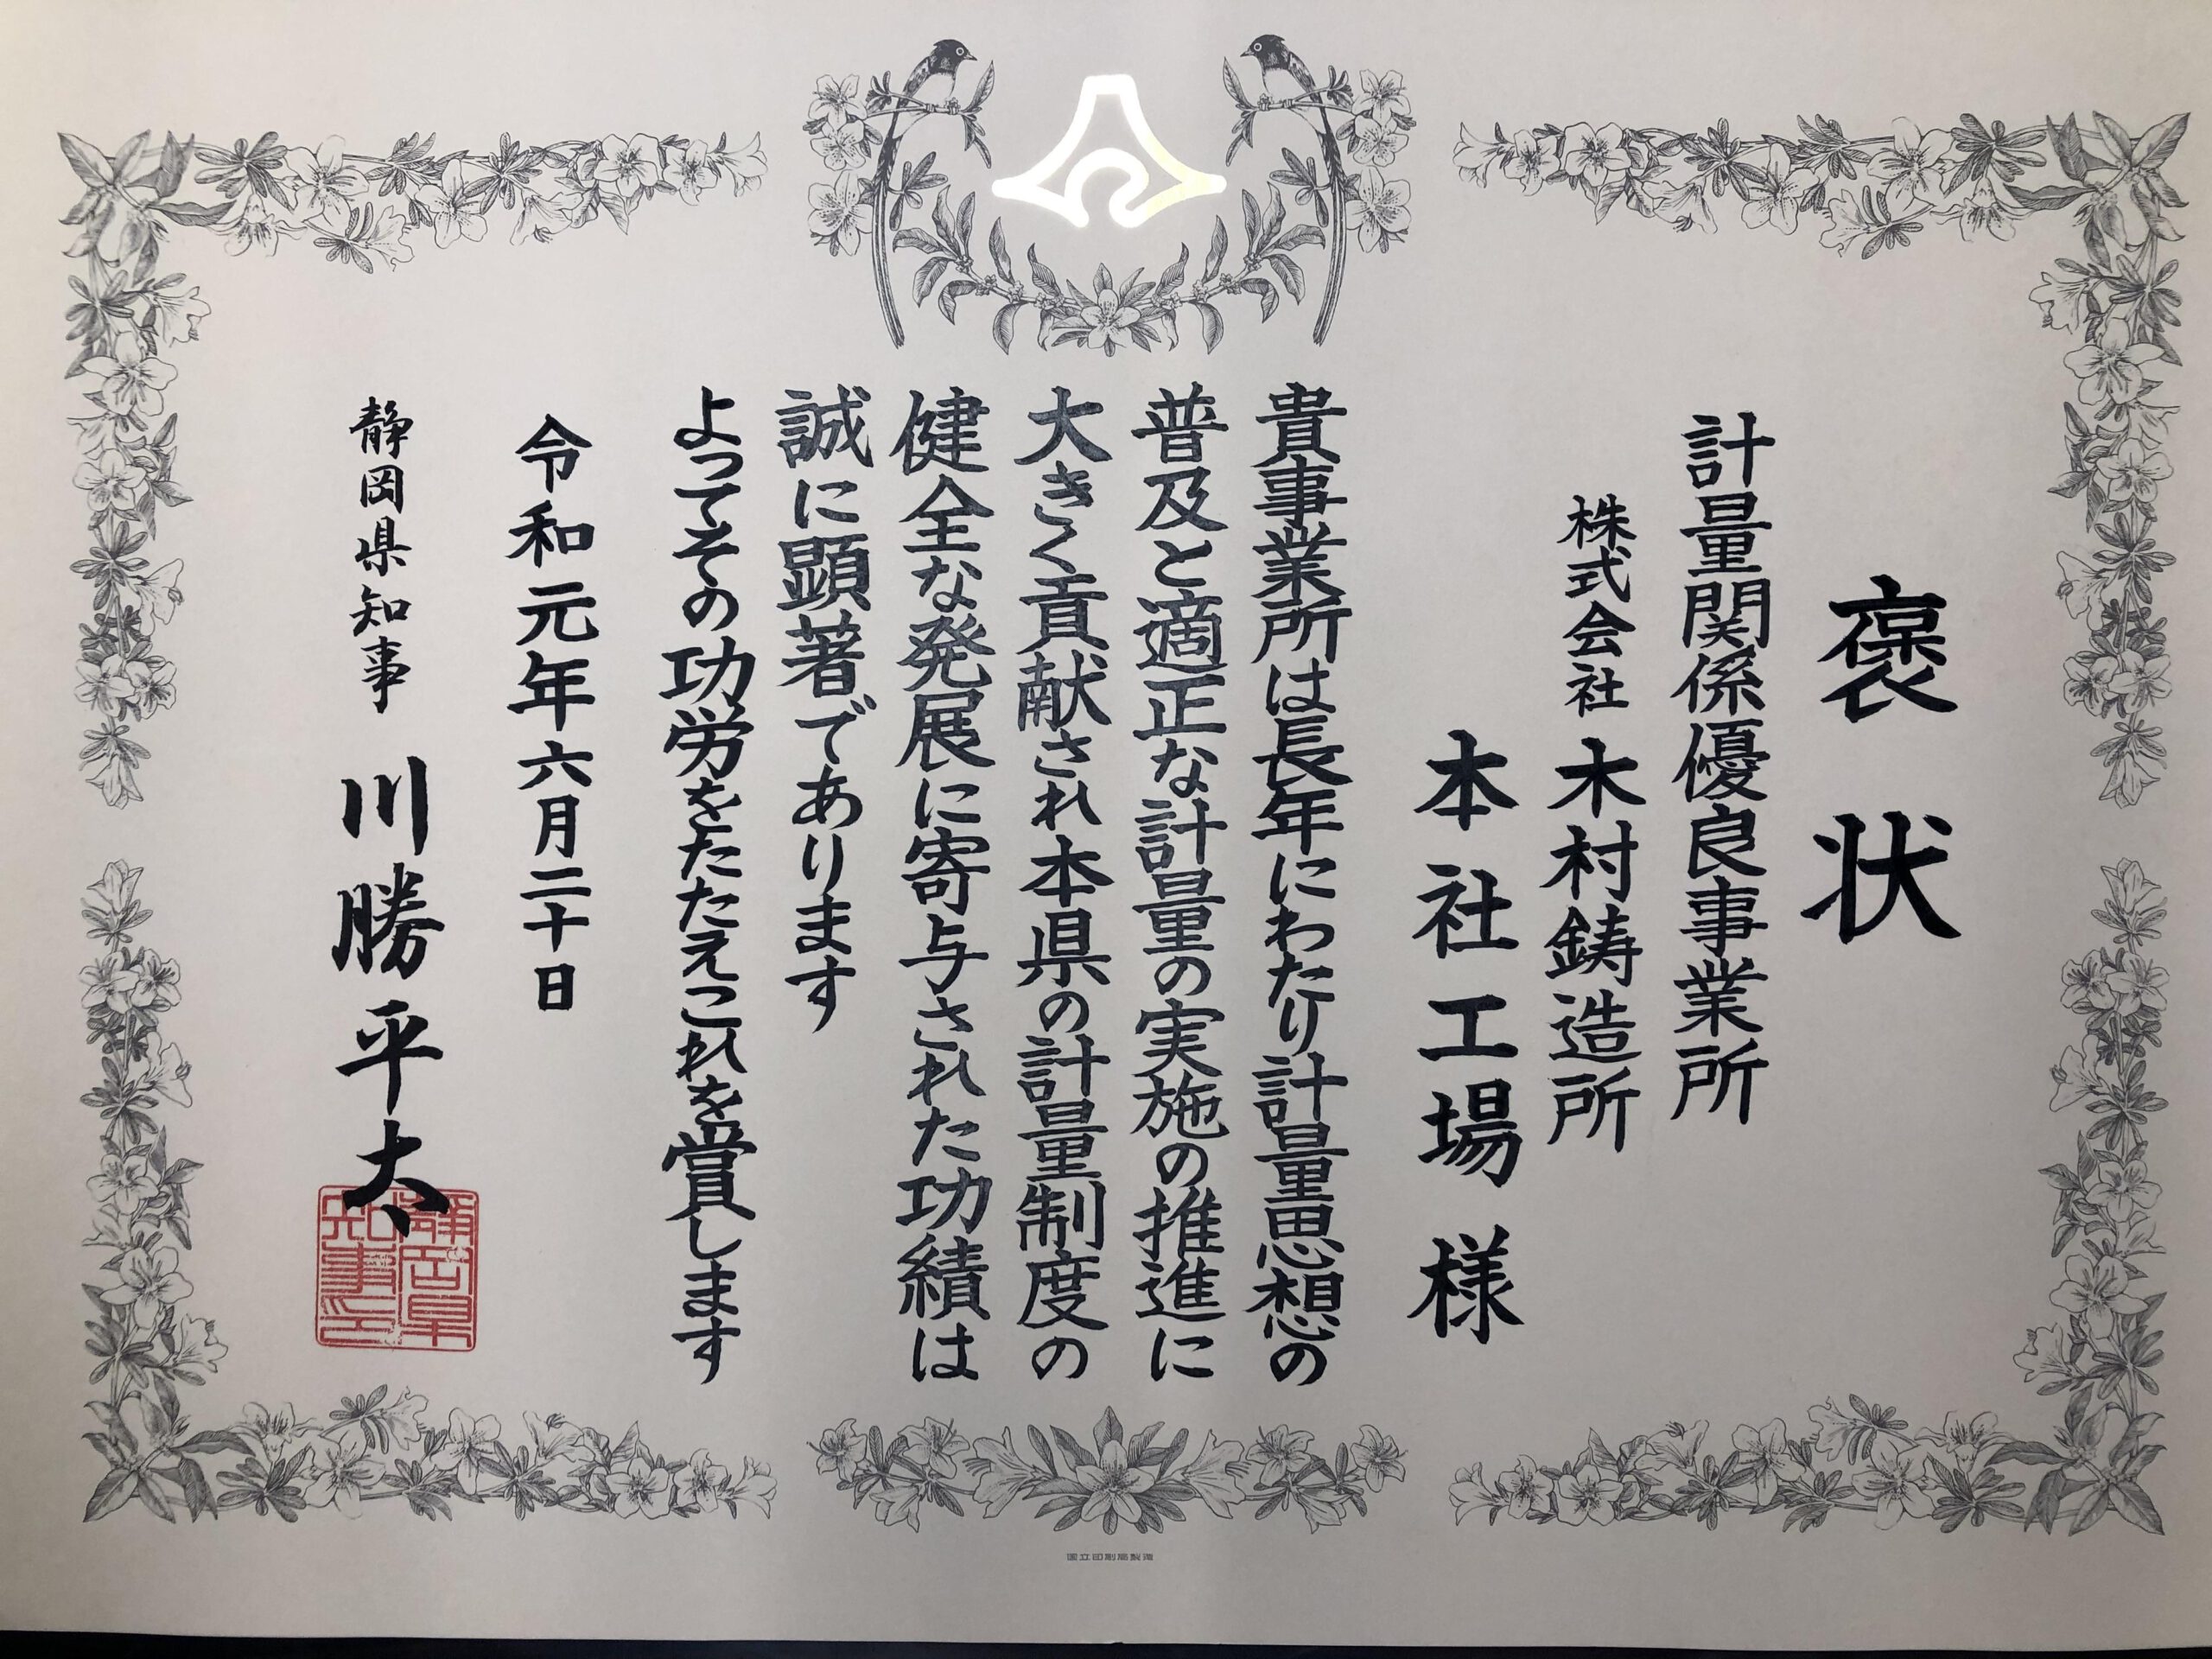 褒状
計量関係優良事業所
株式会社 木村鋳造所
本社工場 様
貴事業所は長年にわたり計量思想の
普及と適正な計量の実施の推進に
大きく貢献され本県の計量制度の
健全な発展に寄与された功績は
誠に顕著であります
よってその功労をたたえこれを賞します
令和元年六月二十日
静岡県知事 川勝平太
静岡県
知事印
国立印刷局製造